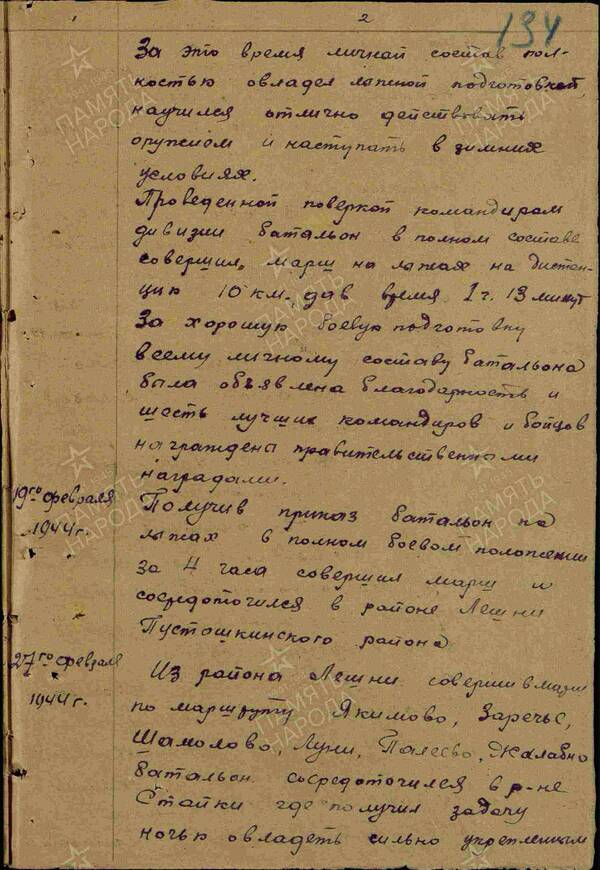 1
2
134
За это время личный состав пол-
ностью овладел лыжной подготовкой,
научился отлично действовать
оружием и наступать в зимних
условиях.
Проведенной поверкой командиром
дивизии батальон в полном составе
совершил марш на лыжах на дистан-
цию 10 км. дав время 1 ч. 13 минут
За хорошую боевую подготовку
всему личному составу батальона
была объявлена благодарность и
шесть лучших командиров и бойцов
награждены правительственными
наградами.
19го февраля
1944 г.
Получив приказ батальон на
лыжах в полном боевом положении
за 4 часа совершил марш и
сосредоточился в районе Лешни
Пустошкинского района
27го февраля
1944 г.
Из района Лешни совершив марш
по маршруту Якимово, Заречье,
Шамолово, Луни, Палеево, Жалавно
батальон сосредоточился в р-не
Стайки где получил задачу
ночью овладеть сильно укрепленным
ПАМЯТЬ НАРОДА